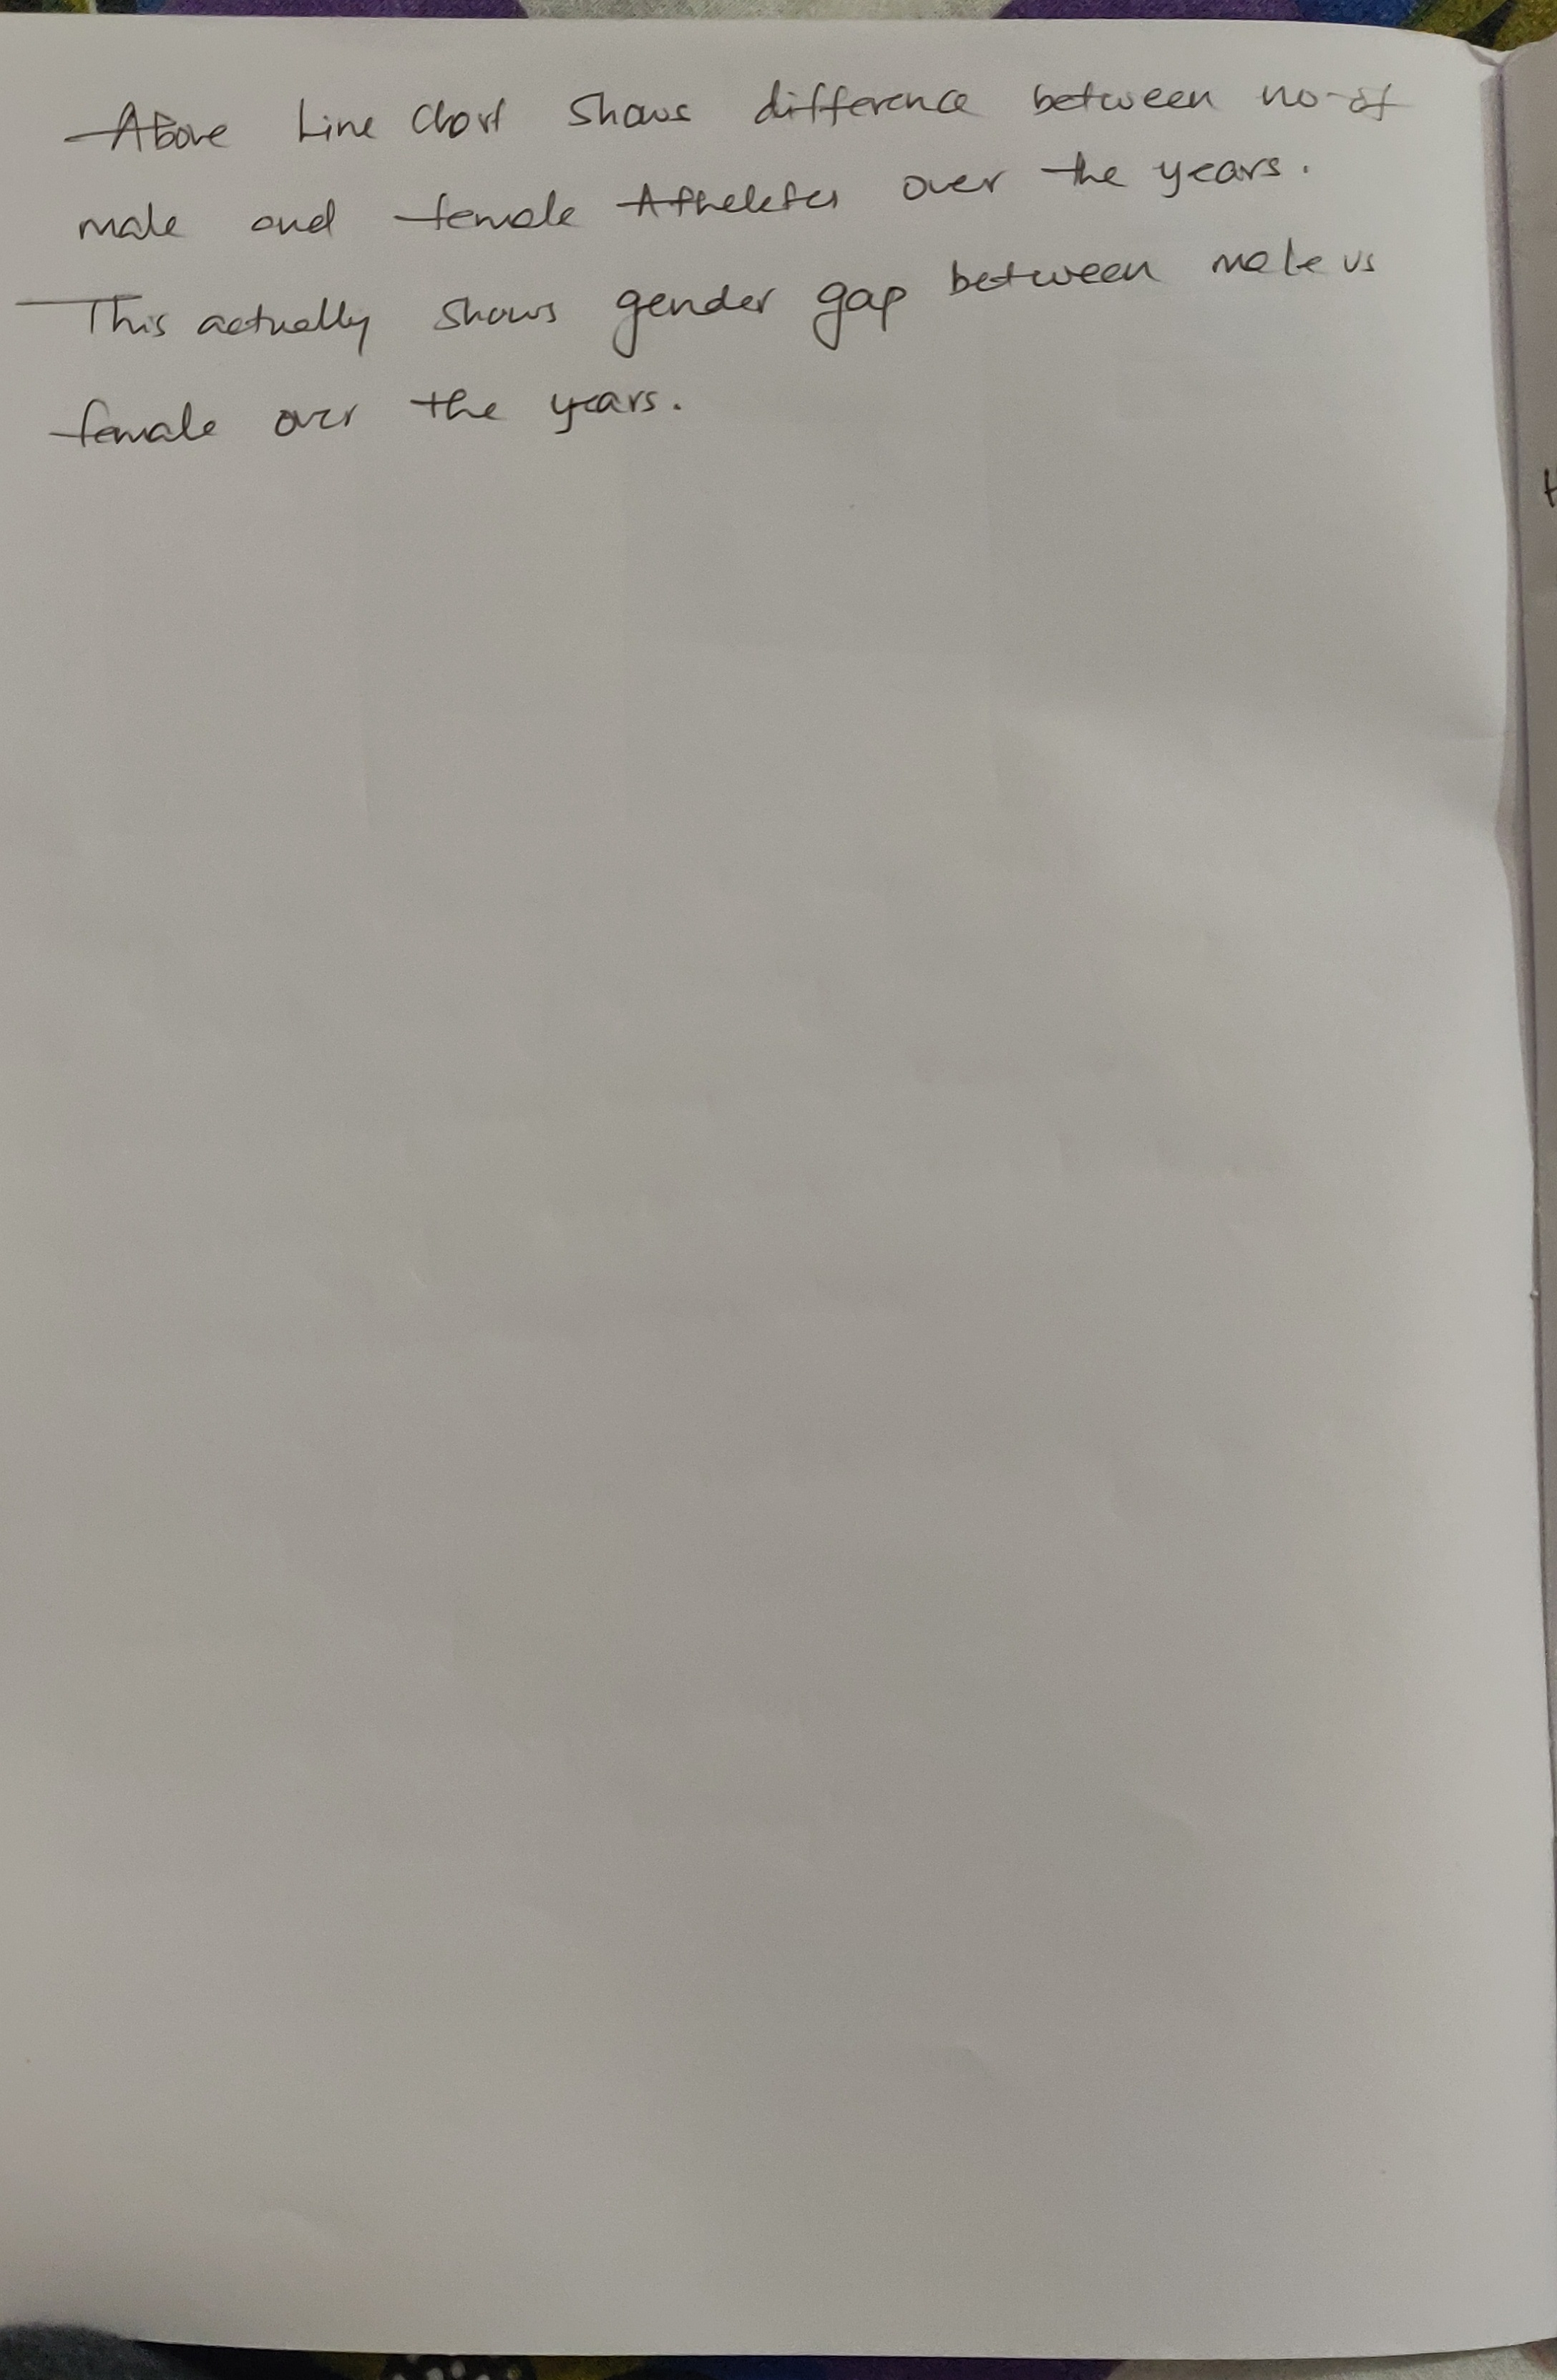 Above Line Chart Shows difference between no-of
male and female Atheletes over the years.
This actually shows gender gap between male vs
female over the years.